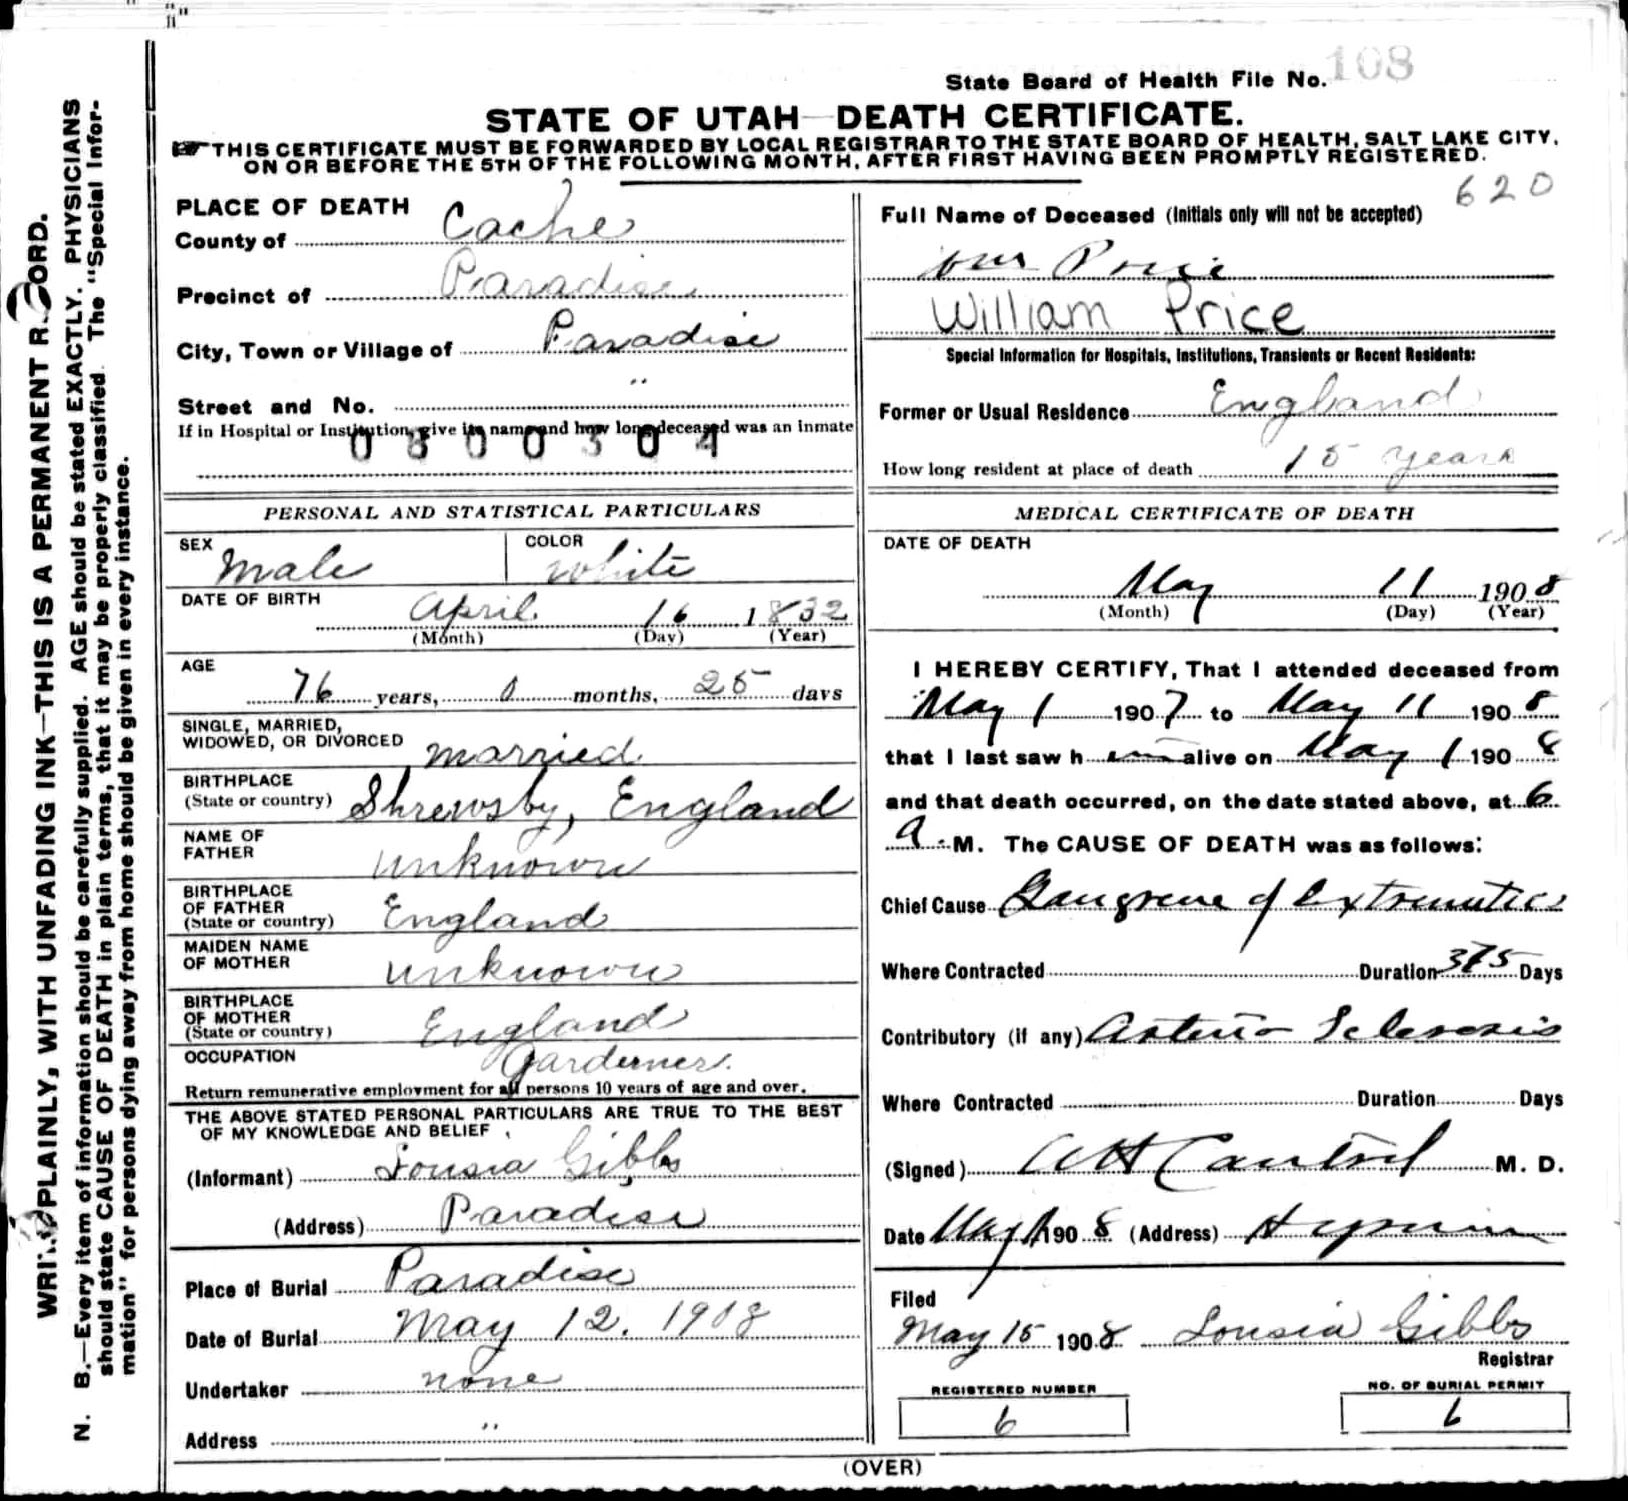 State Board of Health File No. 108
STATE OF UTAH—DEATH CERTIFICATE.
THIS CERTIFICATE MUST BE FORWARDED BY LOCAL REGISTRAR TO THE STATE BOARD OF HEALTH, SALT LAKE CITY,
ON OR BEFORE THE 5TH OF THE FOLLOWING MONTH, AFTER FIRST HAVING BEEN PROMPTLY REGISTERED.
620
PLACE OF DEATH
County of Cache
Precinct of Paradise
City, Town or Village of Paradise
Street and No. "
If in Hospital or Institution, give its name and how long deceased was an inmate
0800304
PERSONAL AND STATISTICAL PARTICULARS
SEX Male COLOR White
DATE OF BIRTH
April 16 1832
(Month) (Day) (Year)
AGE
76 years, 0 months, 25 days
SINGLE, MARRIED,
WIDOWED, OR DIVORCED married
BIRTHPLACE
(State or country) Shrewsby, England
NAME OF
FATHER unknown
BIRTHPLACE
OF FATHER
(State or country) England
MAIDEN NAME
OF MOTHER unknown
BIRTHPLACE
OF MOTHER
(State or country) England
OCCUPATION Gardemer.
Return remunerative employment for all persons 10 years of age and over.
THE ABOVE STATED PERSONAL PARTICULARS ARE TRUE TO THE BEST
OF MY KNOWLEDGE AND BELIEF
(Informant) Lousia Gibbs
(Address) Paradise
Place of Burial Paradise
Date of Burial May 12. 1908
Undertaker none
Address "
Full Name of Deceased (Initials only will not be accepted)
Wm Price
William Price
Special Information for Hospitals, Institutions, Transients or Recent Residents:
Former or Usual Residence England
How long resident at place of death 15 years
MEDICAL CERTIFICATE OF DEATH
DATE OF DEATH
May 11 1908
(Month) (Day) (Year)
I HEREBY CERTIFY, That I attended deceased from
May 1 1907 to May 11 1908
that I last saw h im alive on May 1 1908
and that death occurred, on the date stated above, at 6
a. M. The CAUSE OF DEATH was as follows:
Chief Cause Gangrene of Extremities
Where Contracted Duration 375 Days
Contributory (if any) Arterio Sclerosis
Where Contracted Duration Days
(Signed) M. D.
Date May 1908 (Address) Hyrum
Filed
May 15 1908 Lousia Gibbs
Registrar
REGISTERED NUMBER
6
NO. OF BURIAL PERMIT
6
(OVER)
WRITE PLAINLY, WITH UNFADING INK—THIS IS A PERMANENT RECORD.
N. B.—Every item of information should be carefully supplied. AGE should be stated EXACTLY. PHYSICIANS
should state CAUSE OF DEATH in plain terms, that it may be properly classified. The "Special Infor-
mation" for persons dying away from home should be given in every instance.